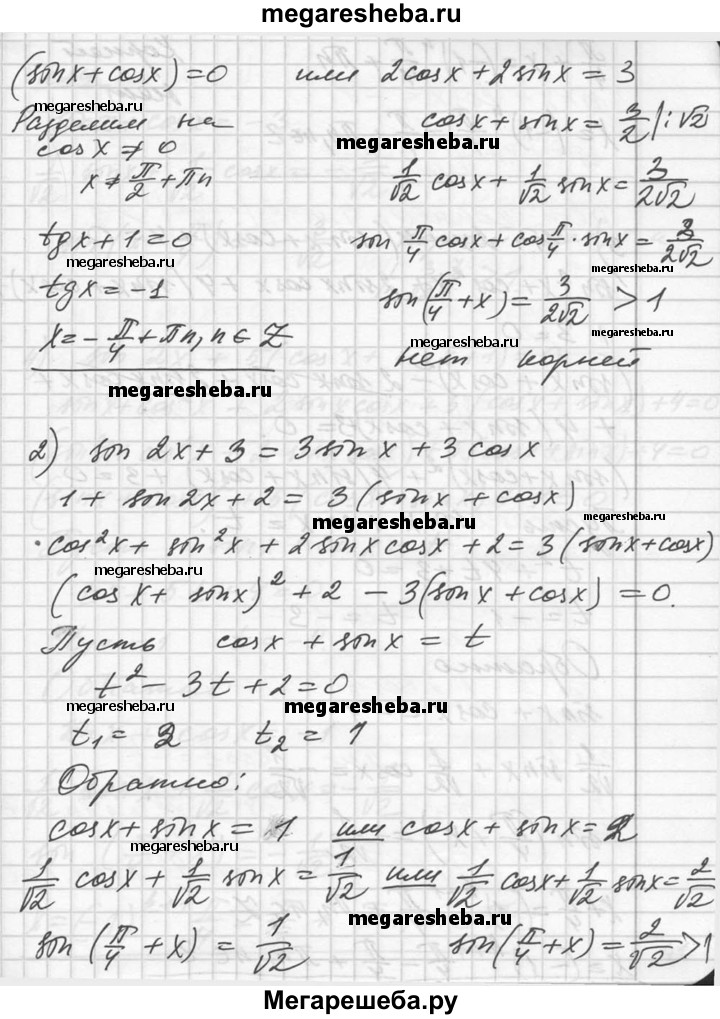 megaresheba.ru
(sin x + cos x) = 0 или 2cos x + 2 sin x = 3
megaresheba.ru
Разделим на cos x + sin x = 3/2 |: √2
cos x ≠ 0 megaresheba.ru
x ≠ π/2 + πn 1/√2 cos x + 1/√2 sin x = 3/(2√2)
tg x + 1 = 0 sin π/4 cos x + cos π/4 · sin x = 3/(2√2)
megaresheba.ru megaresheba.ru
tg x = -1 sin (π/4 + x) = 3/(2√2) > 1
x = - π/4 + πn, n ∈ Z нет корней
megaresheba.ru
2) sin 2x + 3 = 3 sin x + 3 cos x
1 + sin 2x + 2 = 3 (sin x + cos x)
megaresheba.ru megaresheba.ru
cos²x + sin²x + 2 sin x cos x + 2 = 3 (sin x + cos x)
megaresheba.ru
(cos x + sin x)² + 2 - 3 (sin x + cos x) = 0.
Пусть cos x + sin x = t
t² - 3t + 2 = 0
megaresheba.ru megaresheba.ru
t₁ = 2 t₂ = 1
Обратно:
cos x + sin x = 1 или cos x + sin x = 2
megaresheba.ru
1/√2 cos x + 1/√2 sin x = 1/√2 или 1/√2 cos x + 1/√2 sin x = 2/√2
megaresheba.ru
sin (π/4 + x) = 1/√2 sin (π/4 + x) = 2/√2 > 1
Мегарешеба.ру